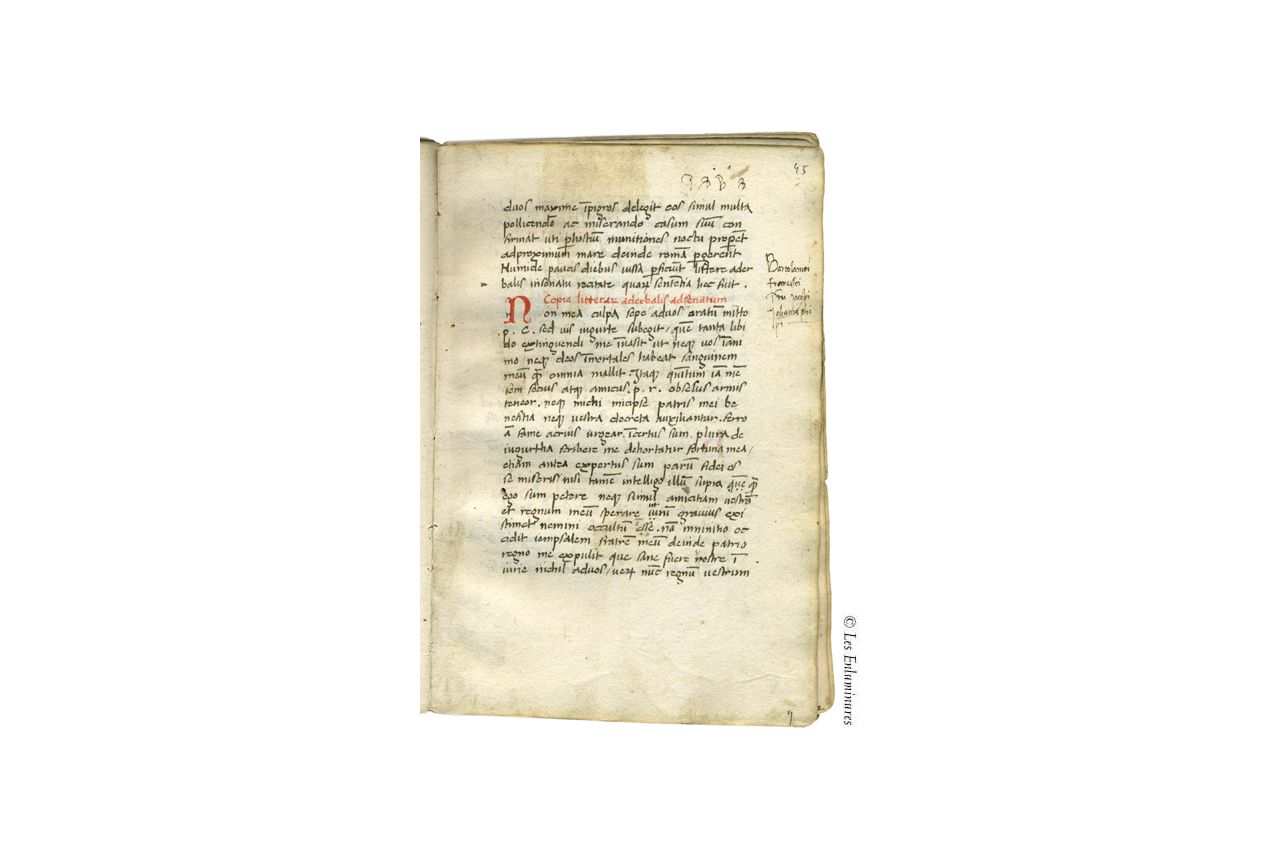 45
duos maxime īpigros delegit eos simul multa
pollicendo ac miserando casum suū con
firmat uti p hostiū munitiones noctu propet
ad proximum mare deinde romā pgerent
Numide paucis diebus iussa pficiūt littere ader
balis insenatu recitate quarꝝ sentētia hec fuit .
Copia litterarꝝ aderbalis adsenatum
Non mea culpa sepe aduos oratum mitto
p . C . sed uis iugurte subegit / quē tanta libi
do extinguendi me īuasit ut neqꝫ uos īani
mo neqꝫ deos īmortales habeat sanguinem
meū q̄ omnia mallit Itaqꝫ quītum iā mē
sem socius atqꝫ amicus . p . r . obsesus armis
teneor . neqꝫ michi micipse patris mei be
nefitia neqꝫ uestra decreta auxiliantur . ferro
ā fame acrius urgear īcertus sum . plura de
iugurtha scribere me dehortatur fortuna mea /
etiam antea expertus sum parū fidei es
se miseris nisi tamē intelligo illū supra quē q̄
ego sum petere neqꝫ simul amicitiam uestrā
et regnum meū sperare utrū grauius exi
stimet nemini occultū esse . nā īninitio oc
cidit iempsalem fratrē meū deinde patrio
regno me expulit que sane fuere nostre ī
iurie nichil aduos / uerꝝ nūc regnū uestrum
Bartolamei
francisci
Johannis phi
© Les Enluminures